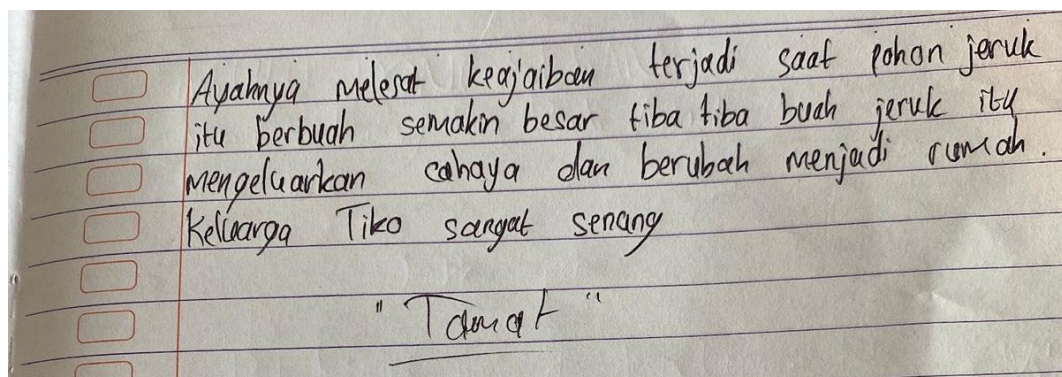 Ayahnya melesat keajaiban terjadi saat pohon jeruk
itu berbuah semakin besar tiba tiba buah jeruk itu
mengeluarkan cahaya dan berubah menjadi rumah.
Keluarga Tiko sangat senang
"Tamat"